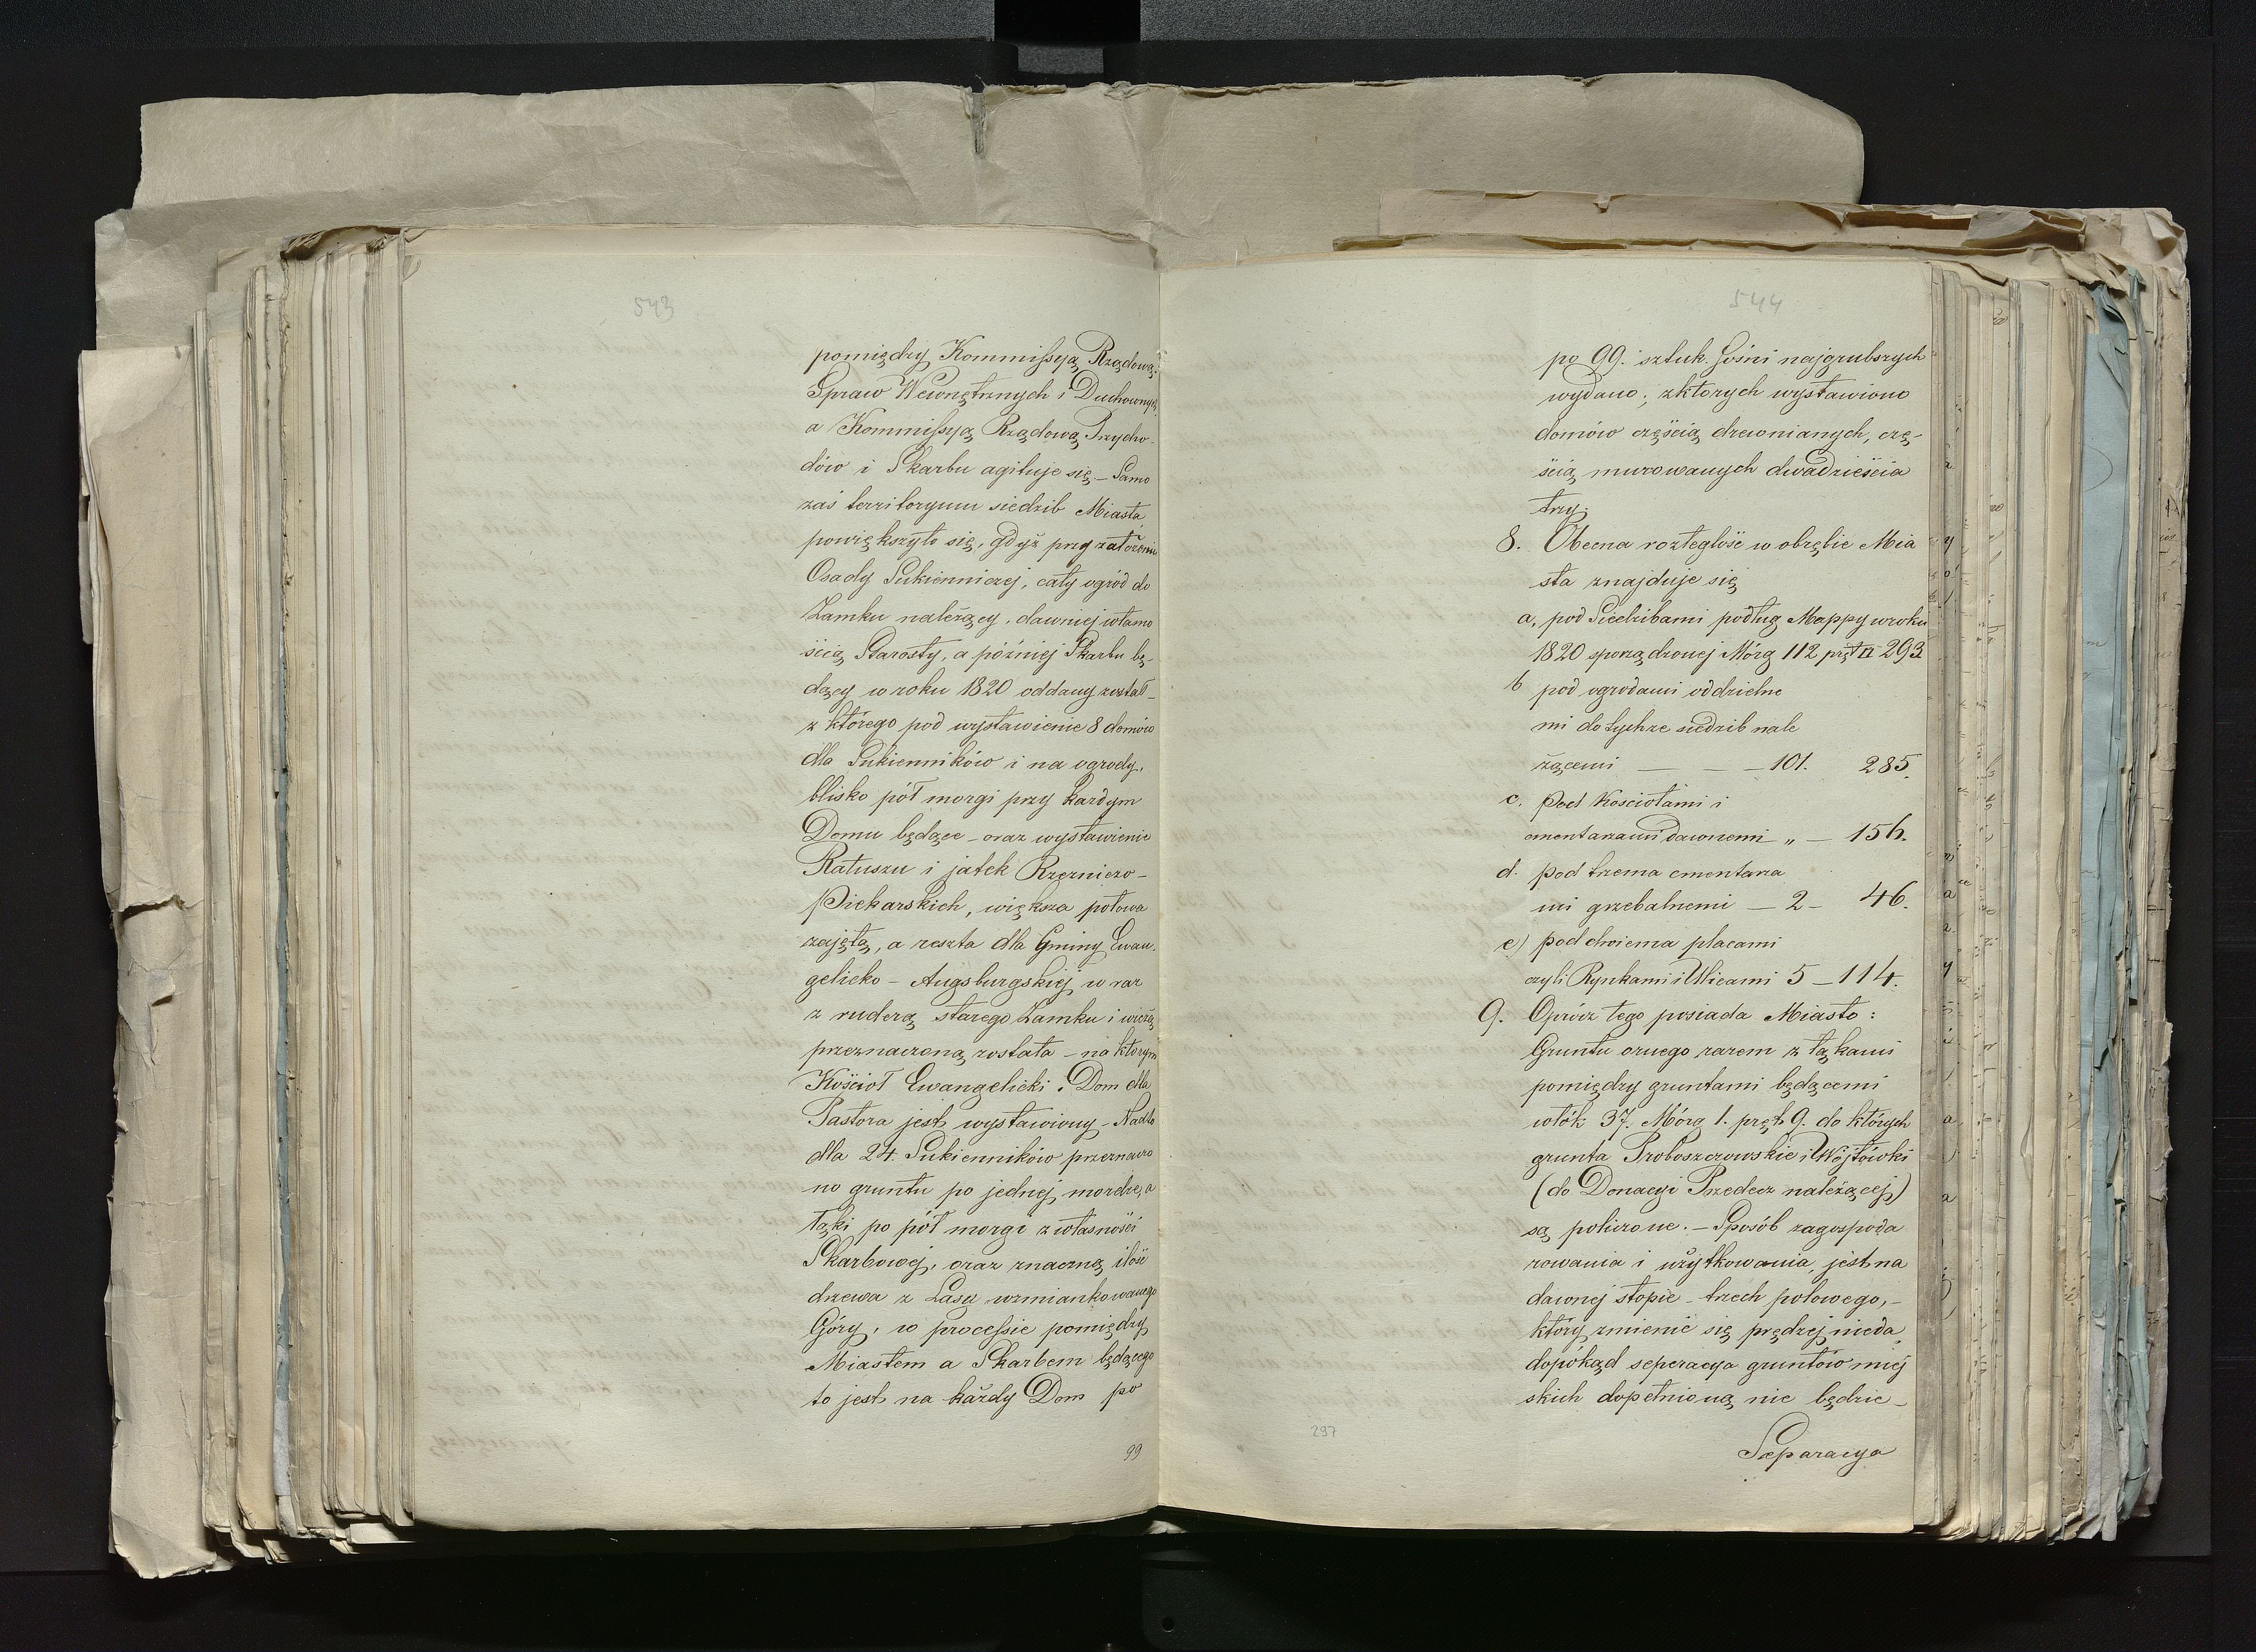 543
pomiędzy Kommissyą Rządową
Spraw Wewnętrznych i Duchownych
a Kommissyą Rządową Przycho-
dów i Skarbu agituje się – Samo
zaś territoryum siedzib Miasta
powiększyło się, gdyż przy założeniu
Osady Sukienniczej, cały ogród do
Zamku należący, dawniej własno
ścią Starosty, a później Skarbu bę-
dący w roku 1820 oddany został –
z którego pod wystawienie 8 domów
dla Sukienników i na ogrody,
blisko pół morgi przy każdym
Domu będące – oraz wystawienie
Ratuszu i jatek Rzezniczo –
Piekarskich, większa połowa
zajętą, a reszta dla Gminy Ewan-
gelicko – Augsburgskiej w raz
z ruderą starego Zamku i wieżą
przeznaczoną została – na którym
Kościoł Ewangelicki i Dom dla
Pastora jest wystawiony – Nadto
dla 24. Sukienników przeznaczo
no gruntu po jednej mordze, a
łąki po pół morgi z własności
Skarbowej, oraz znaczną ilość
drzewa z Lasu wzmiankowanego
Góry, w processie pomiędzy
Miastem a Skarbem będącego
to jest na każdy Dom po
99
544
po 99. sztuk Sośni najgrubszych
wydano; zktorych wystawiono
domów częścią drewnianych, czę-
ścią murowanych dwadzieścia
trzy.
8. Obecna rozległość w obrębie Mia
sta znajduje się
a, pod Siedzibami podług Mappy wroku
1820 sporządzonej Mórg 112 pręt □ 293
b pod ogrodami oddzielne
mi do tychże siedzib nale
żącemi — — — 101. 285.
c. pod Kosciołami i
cmentarzami dawnemi „ — 156.
d. pod trzema cmentarza
mi grzebalnemi — 2 – 46.
e) pod dwiema placami
czyli Rynkami i Ulicami 5 – 114.
9. Oprócz tego posiada Miasto:
Gruntu ornego razem z łąkami
pomiędzy gruntami będącemi
włók 37. Mórg 1. pręt 9. do których
grunta Proboszczowskie i Wójtówki
(do Donacyi Przedecz należącej)
są policzone. – Sposób zagospoda
rowania i użytkowania, jest na
dawnej stopie – trzech polowego, –
który zmienić się prędzej nieda,
dopókąd seperacya gruntów miej
skich dopełnioną nie będzie –
Separacya
297